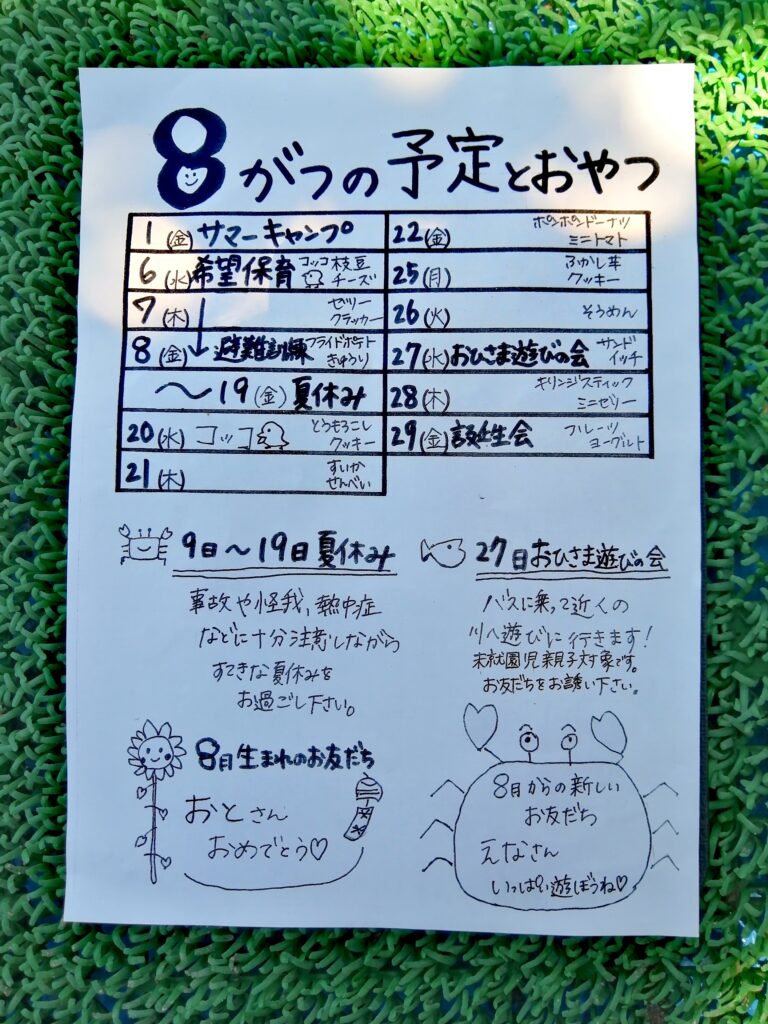 8がつの予定とおやつ
1(金) サマーキャンプ
6(水) 希望保育 コッコ 枝豆
チーズ
7(木) ゼリー
クラッカー
8(金) 避難訓練 フライドポテト
きゅうり
〜19(金) 夏休み
20(水) コッコ とうもろこし
クッキー
21(木) すいか
せんべい
22(金) ポンポンドーナツ
ミニトマト
25(月) ふかし芋
クッキー
26(火) そうめん
27(水) おひさま遊びの会 サンド
イッチ
28(木) キリンジスティック
ミニゼリー
29(金) 誕生会 フルーツ
ヨーグルト
9日〜19日 夏休み
事故や怪我,熱中症
などに十分注意しながら
すてきな夏休みを
お過ごし下さい。
27日おひさま遊びの会
バスに乗って近くの
川へ遊びに行きます!
未就園児親子対象です。
お友だちをお誘い下さい。
8月生まれのお友だち
おとさん
おめでとう♡
8月からの新しい
お友だち
えなさん
いっぱい遊ぼうね♡